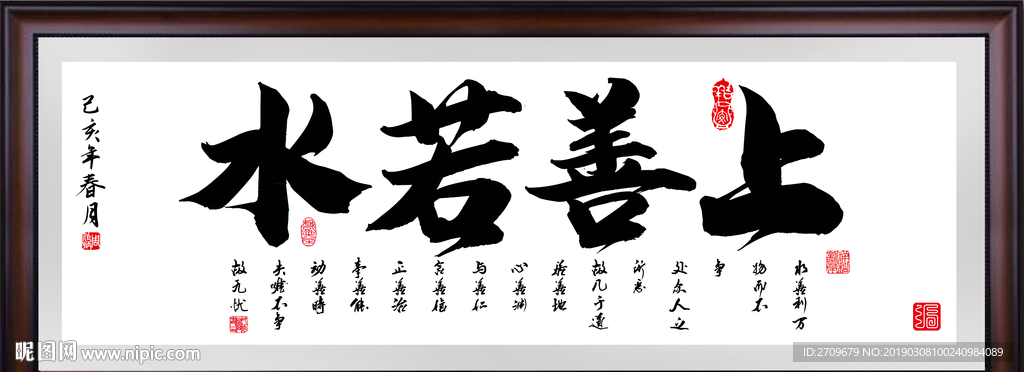 上善若水
水善利万
物而不
争
处众人之
所恶
故几于道
居善地
心善渊
与善仁
言善信
正善治
事善能
动善時
夫唯不争
故无忧
己亥年春月
昵图网 www.nipic.com
ID:2709679 NO:20190308100240984089